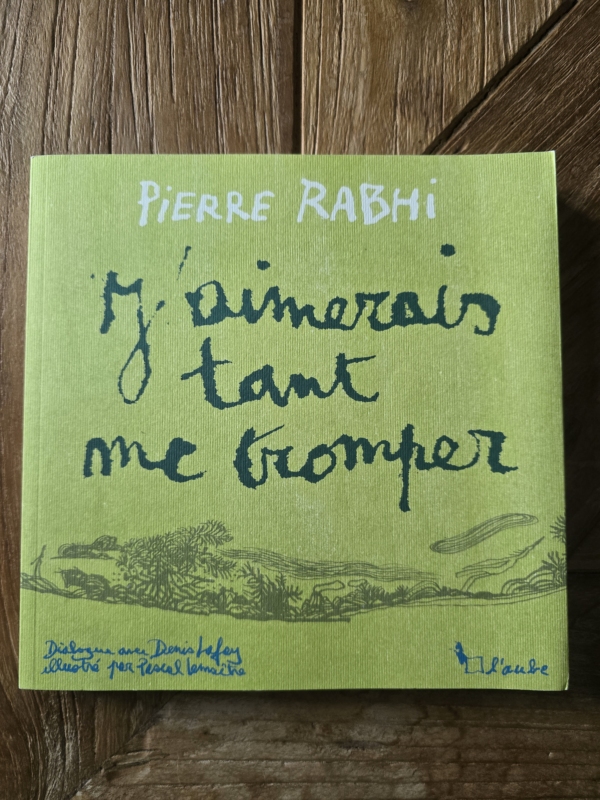 PiERRE RABHi
J'aimerais
tant
me tromper
Dialogue avec Denis Lafay
illustré par Pascal Lemaitre
l'aube